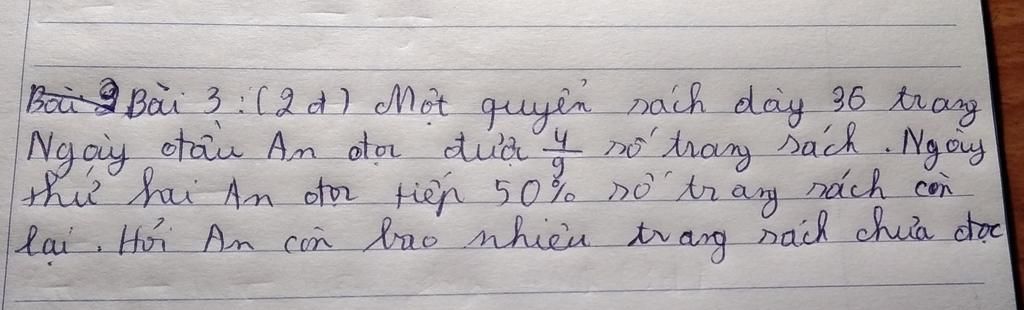 Bài 3 : (2đ) Một quyển sách dày 36 trang
Ngày đầu An đọc được 4/9 số trang sách. Ngày
thứ hai An đọc tiếp 50% số trang sách còn
lại. Hỏi An còn bao nhiêu trang sách chưa đọc